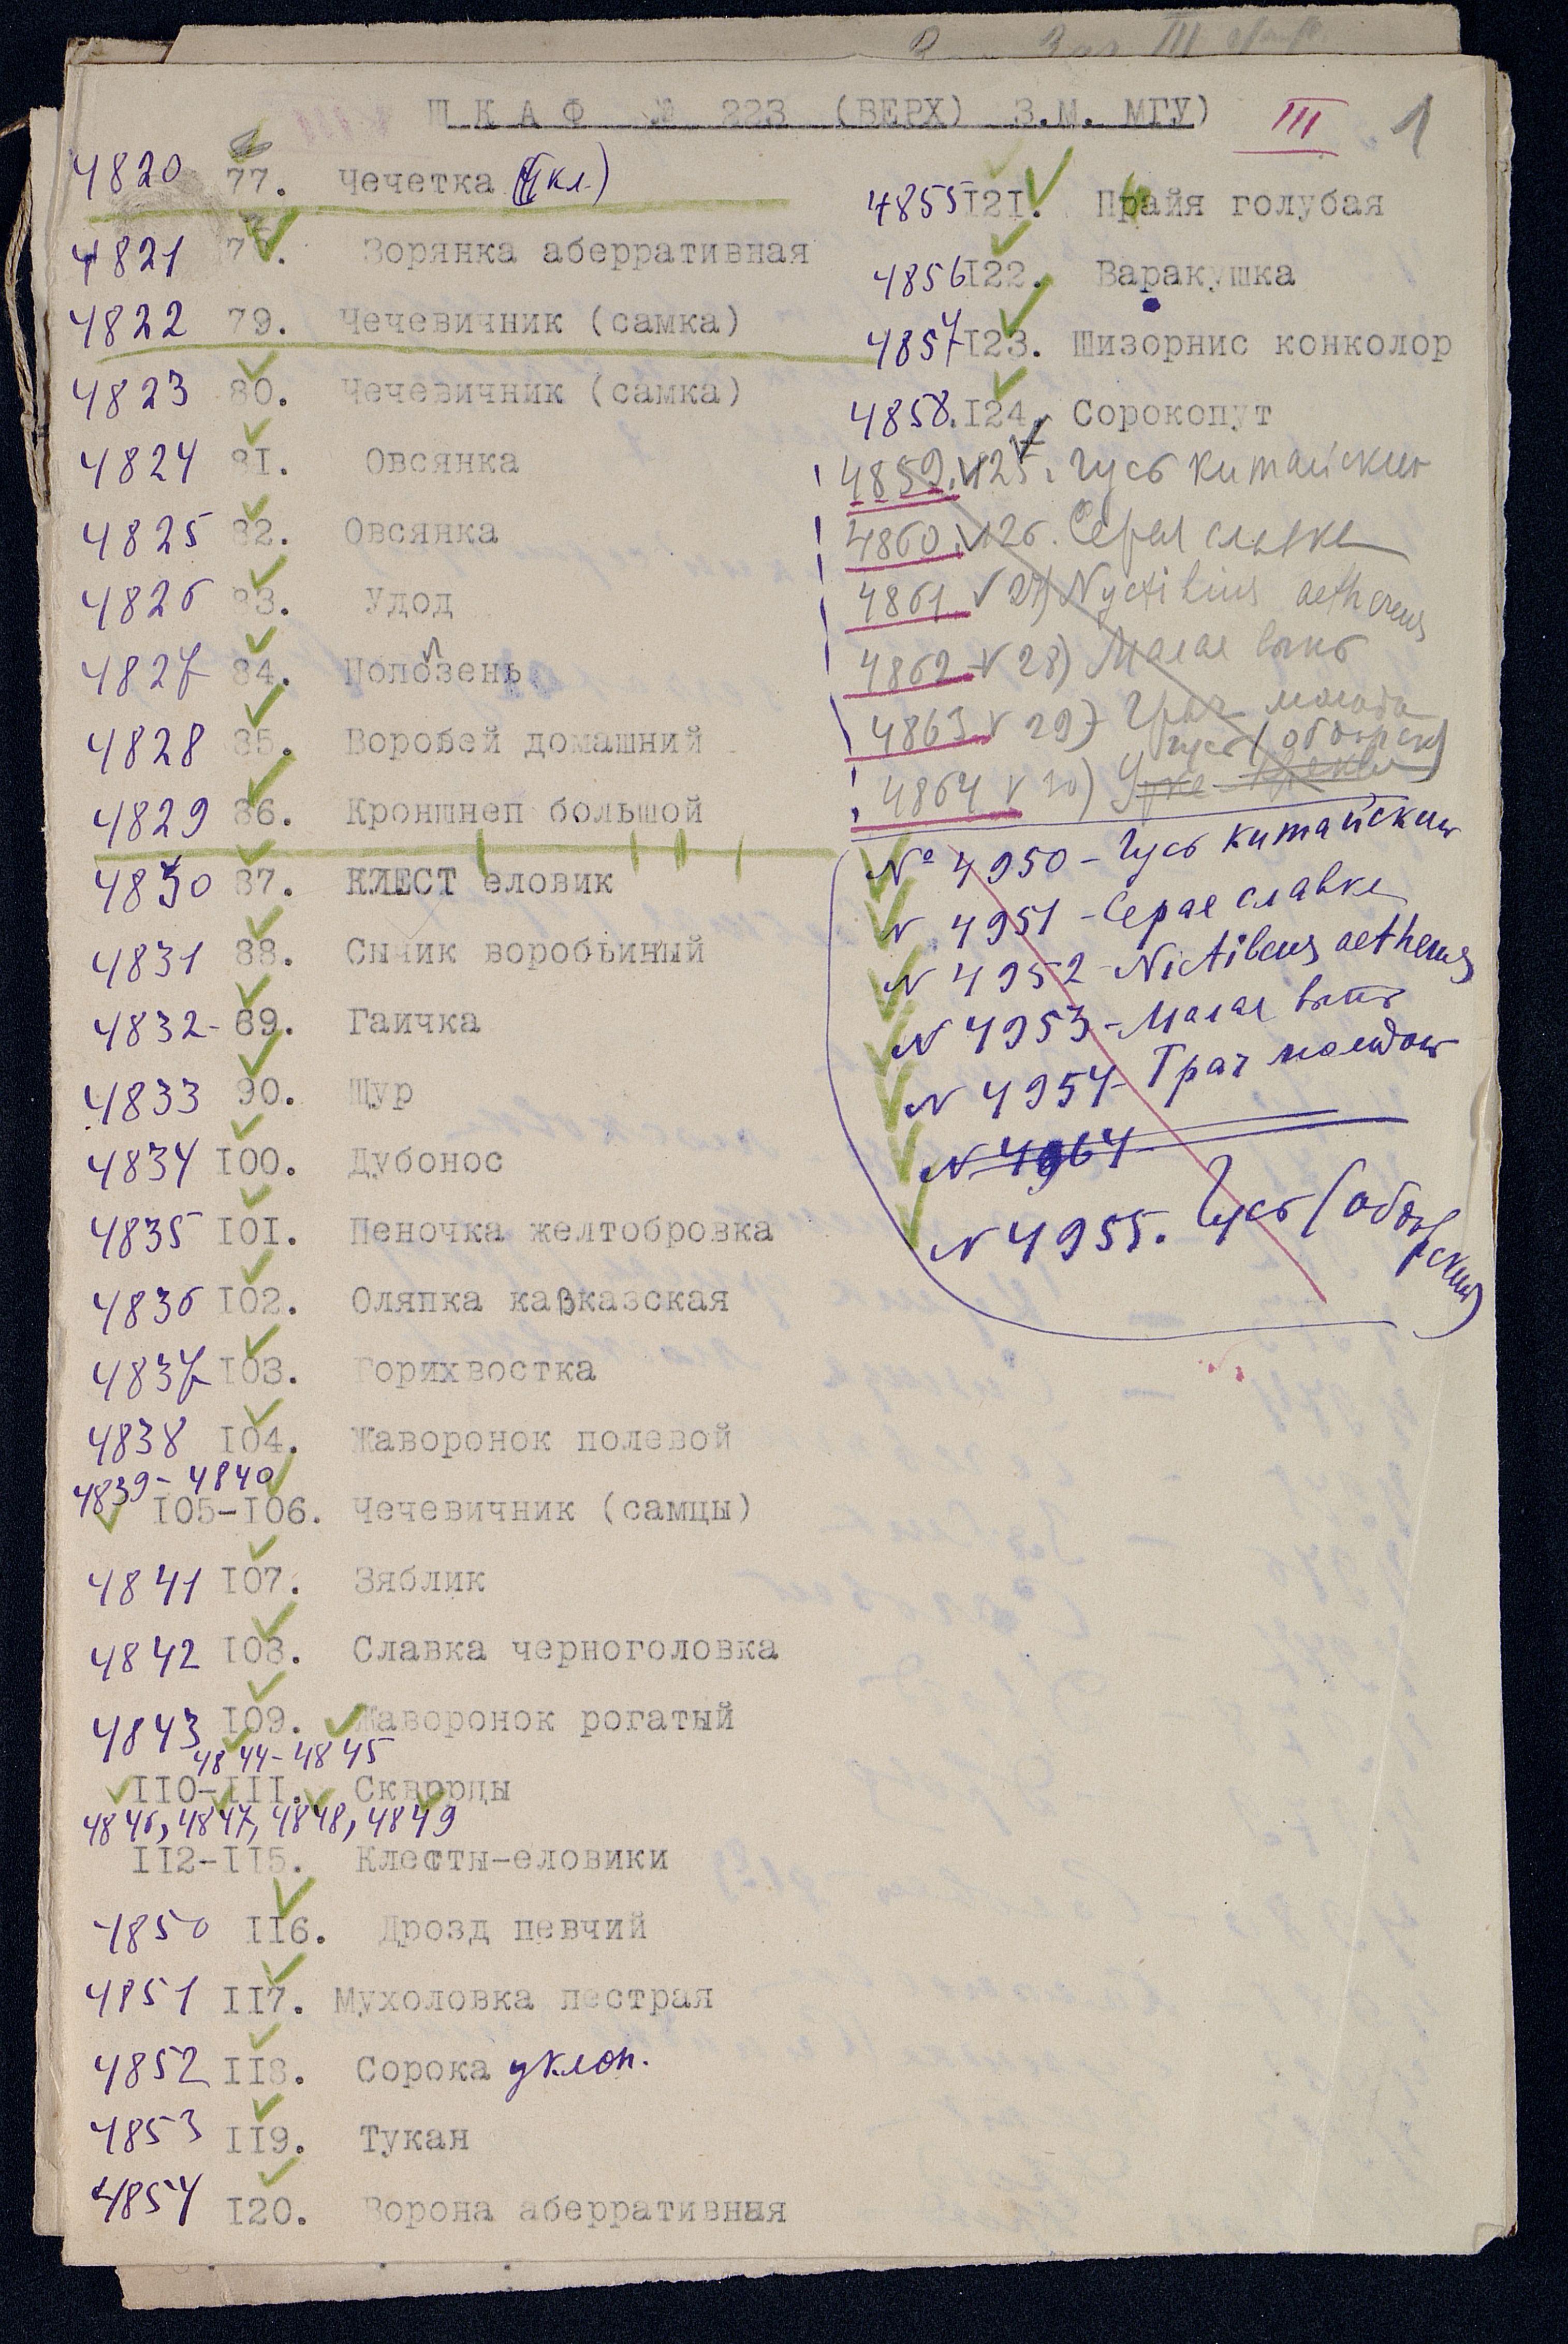 ШКАФ № 223 (ВЕРХ) З.М. МГУ) III 1
4820 77. Чечетка
4821 78. Зорянка аберративная
4822 79. Чечевичник (самка)
4823 80. Чечевичник (самка)
4824 81. Овсянка
4825 82. Овсянка
4826 83. Удод
4827 84. Поползень
4828 85. Воробей домашний
4829 86. Кроншнеп большой
4830 87. КЛЕСТ еловик
4831 88. Сычик воробьиный
4832- 89. Гаичка
4833 90. Щур
4834 100. Дубонос
4835 101. Пеночка желтобровка
4836 102. Оляпка кавказская
4837 103. Горихвостка
4838 104. Жаворонок полевой
4839-4840
105-106. Чечевичник (самцы)
4841 107. Зяблик
4842 108. Славка черноголовка
4843 109. Жаворонок рогатый
4844-4845
110-111. Скворцы
4846, 4847, 4848, 4849
112-115. Клесты-еловики
4850 116. Дрозд певчий
4851 117. Мухоловка пестрая
4852 118. Сорока уклон.
4853 119. Тукан
4854 120. Ворона аберративная
4855 121. Прайя голубая
4856 122. Варакушка
4857 123. Шизорнис конколор
4858. 124. Сорокопут
4859. 125. Гусь китайский
4860. 126. Серая славка
4861. 27) Nyctibius aethereus
4862 28) Малая выпь
4863 29) Грач молодо
гусь (обдорск)
4864 30) Утка
№ 4950 - Гусь китайский
N 4951 - Серая славка
N 4952 - Nictibeus aetherus
N 4953 - Малая выпь
N 4954 - Грач молодой
N 4964
N 4955. Гусь (обдорский)